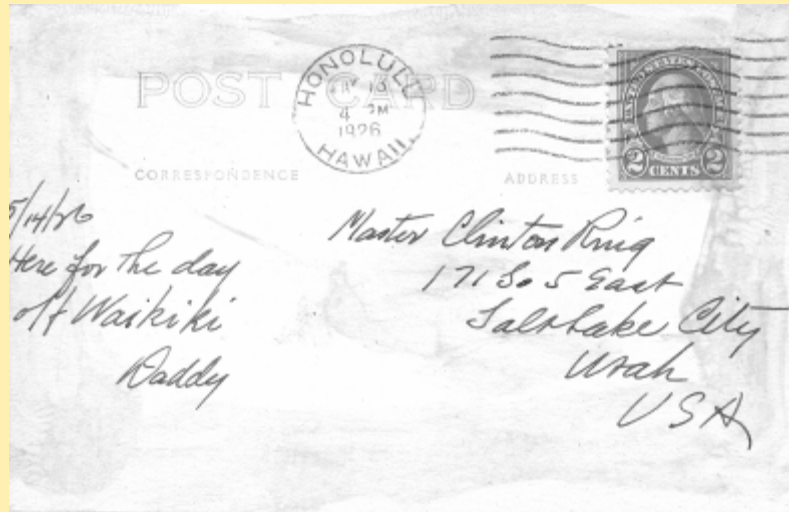 POST CARD
HONOLULU
13
4 PM
1926
HAWAII
UNITED STATES POSTAGE
2 CENTS 2
CORRESPONDENCE
ADDRESS
5/14/26
Here for the day
off Waikiki
Daddy
Master Clinton Ring
171 So 5 East
Salt Lake City
Utah
USA